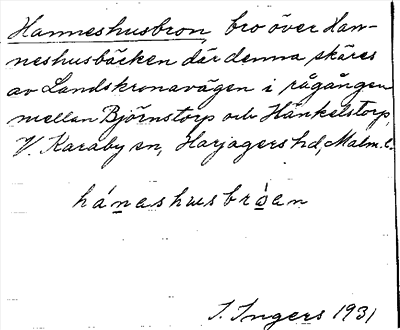 Hanneshusbron, bro över Han-
neshusbäcken där denna skäres
av Landskronavägen i rågången
mellan Björnstorp och Hänkelstorp,
V. Karaby sn, Harjagers hd, Malm. l.
háneshusbròen
I. Ingers 1931